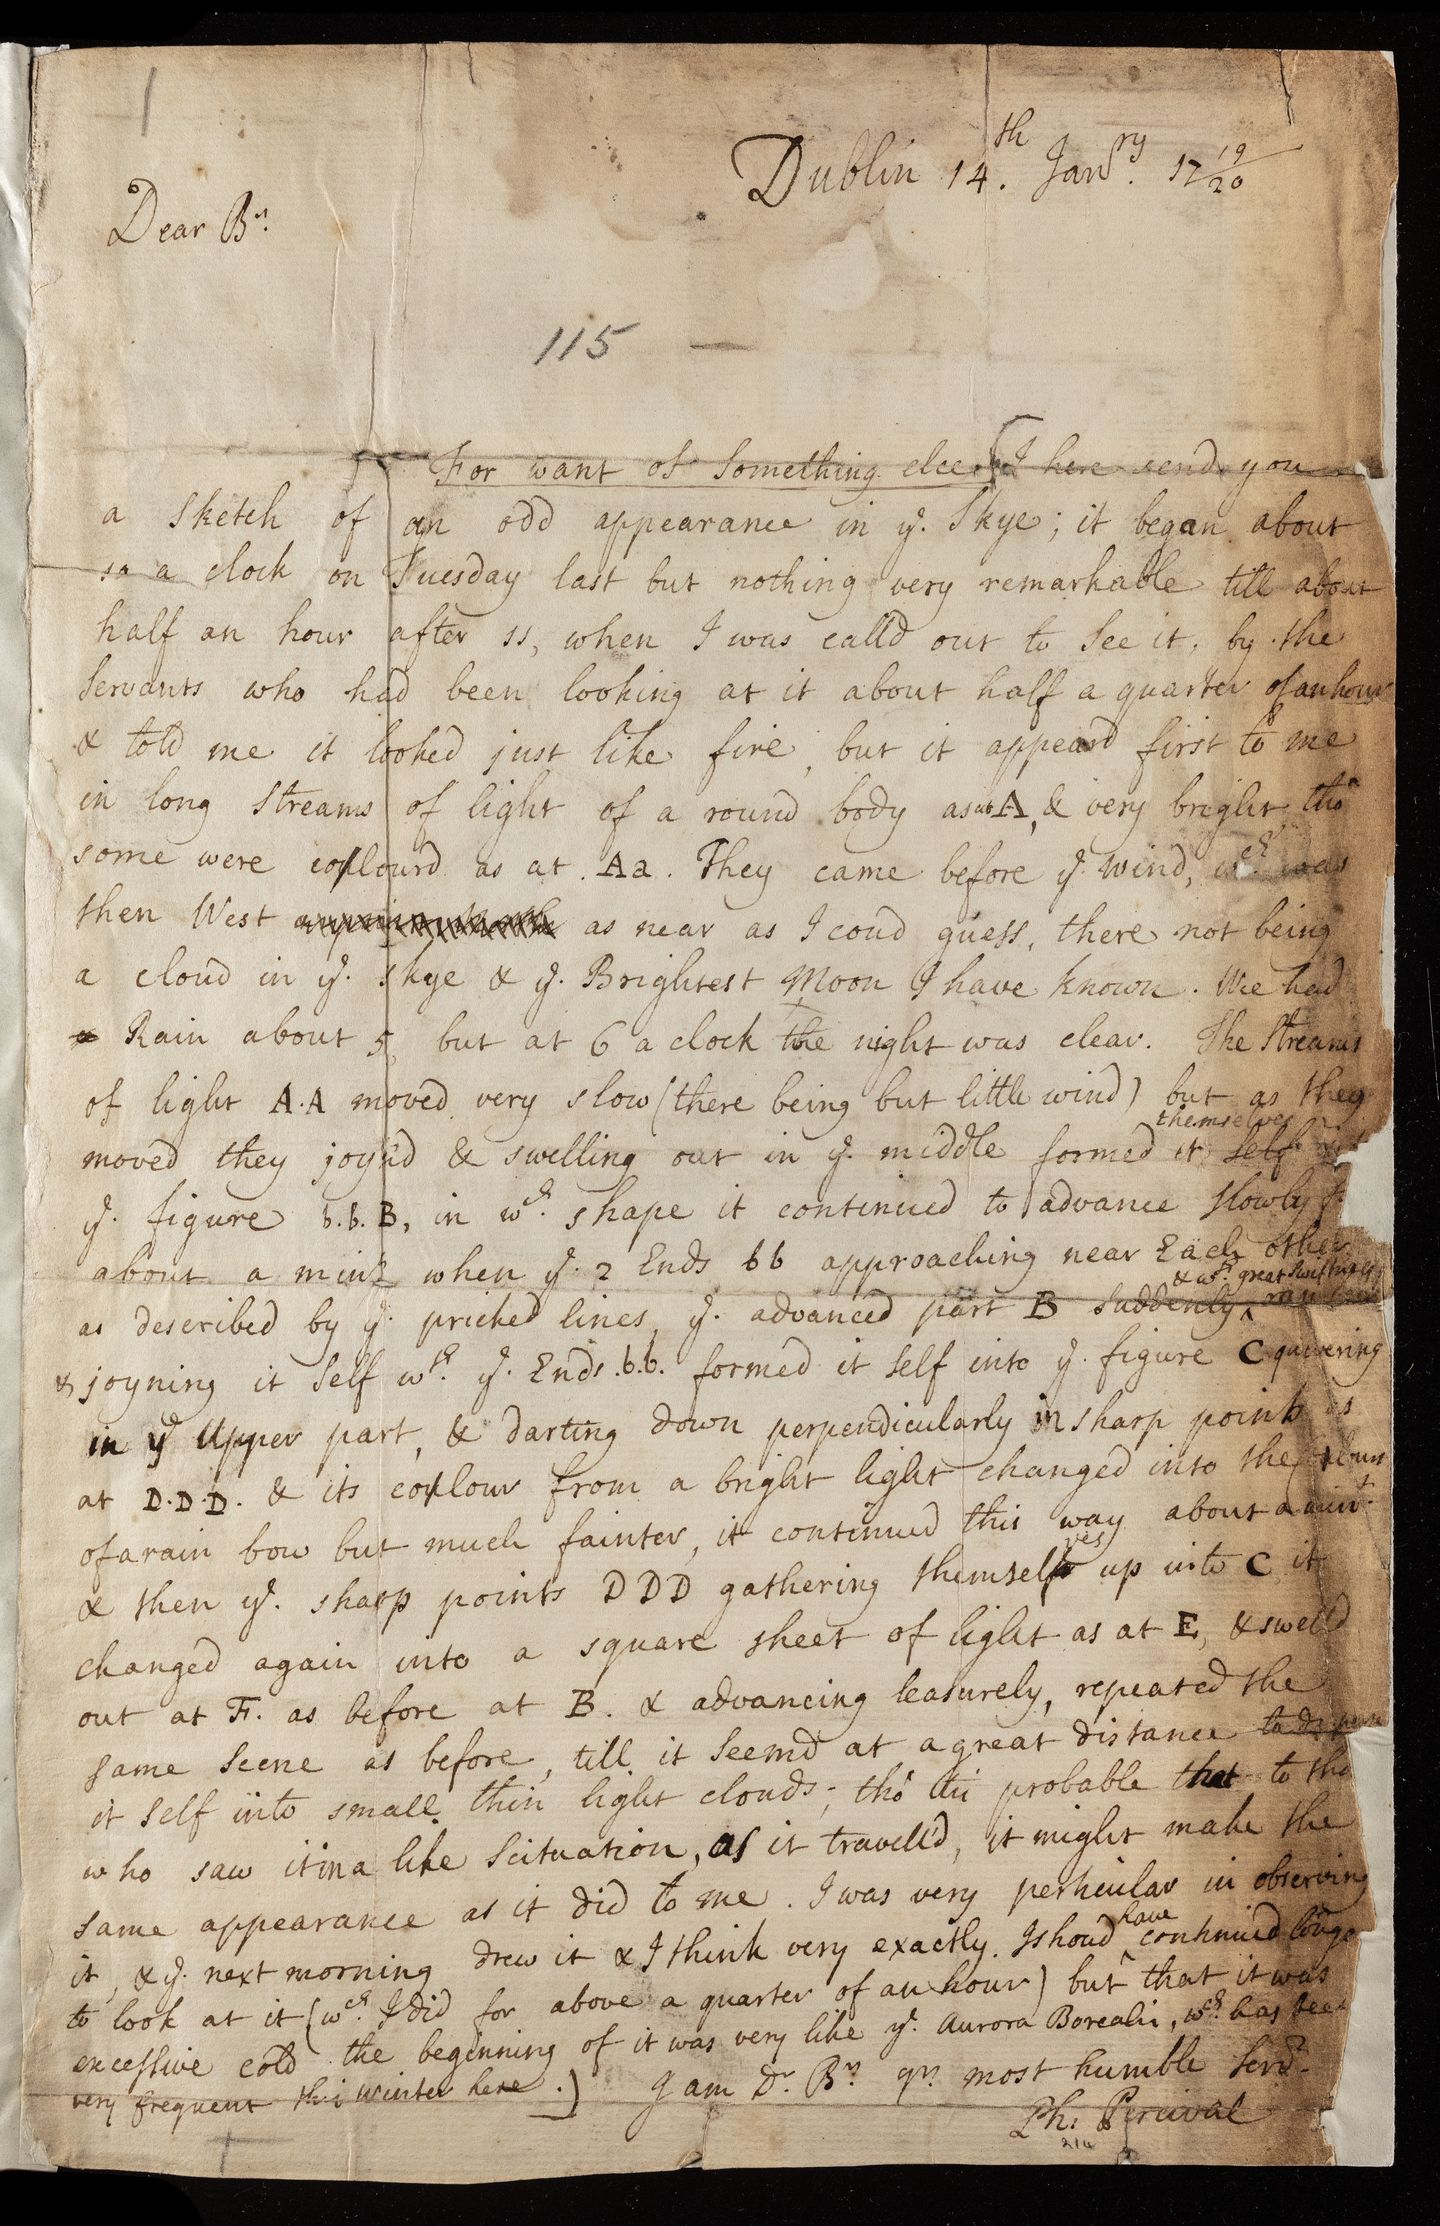 1
Dublin 14th. Janry. 17 19/20
Dear Br.
115 —
For want of Something elce I here send you
a Sketch of an odd appearance in ye. Skye; it began about
10 a clock on Tuesday last but nothing very remarkable till about
half an hour after 11, when I was calld out to See it, by the
Servants who had been looking at it about half a quarter of an hour
& told me it looked just like fire, but it appeard first to me
in long Streams of light of a round body as at A, & very bright tho'
some were collourd as at Aa. They came before ye. Wind, wch. was
then West as near as I coud guess, there not being
a cloud in ye. Skye & ye. Brightest Moon I have known. We had
Rain about 5, but at 6 a clock the night was clear. The Streams
of light A.A moved very slow (there being but little wind) but as they
moved they joyn'd & swelling out in ye. middle formed it self themselves
ye. figure b.b.B, in wch. shape it continued to advance slowly
about a mint. when ye. 2 Ends bb approaching near Each other
as described by ye. pricked lines, ye. advanced part B suddenly & wth. great swiftness ran
& joyning it Self wth. ye. Ends .b.b. formed it Self into ye. figure C quivering
in ye Upper part, & darting down perpendicularly in sharp points as
at D.D.D. & its collour from a bright light changed into the Colours
of a rain bow but much fainter, it continued this way about a mint.
& then ye. sharp points DDD gathering themselves up into C it
changed again into a square sheet of light as at E, & swell'd
out at F. as before at B. & advancing leasurely, repeated the
same Scene as before, till it Seemd at a great distance to
it Self into small thin light clouds; tho' tis probable that to tho
who saw it in a like Scituation, as it travell'd, it might make the
same appearance as it did to me. I was very perticular in observing
it, & ye. next morning drew it & I think very exactly. I shoud have continued longe
to look at it (wch. I did for above a quarter of an hour) but that it was
excessive cold the beginning of it was very like ye. Aurora Borealis, wch. has bee
very frequent this winter here.) I am Dr. Br. yr. most humble Servt.
Ph: Percival
214